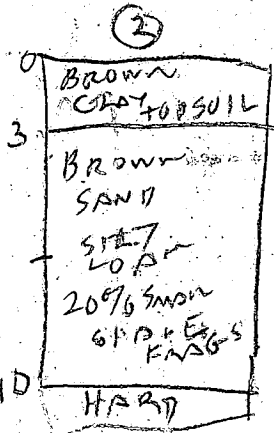 2
0
BROWN
CLAY TOPSOIL
3
BROWN
SAND
SILT
LOAM
20% SMALL
FRAGS
10
HARD